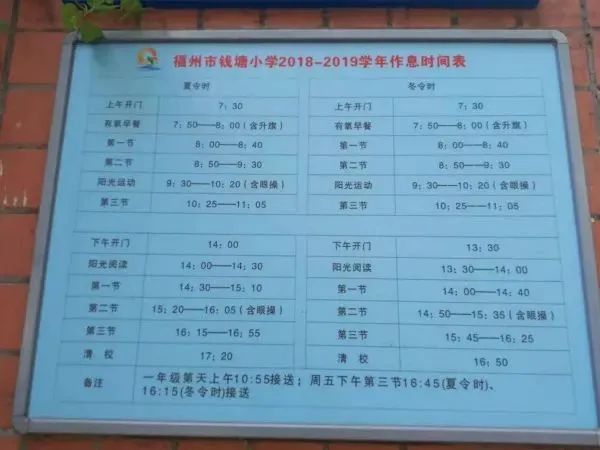 福州市钱塘小学2018-2019学年作息时间表
夏令时 冬令时
上午开门 7：30 上午开门 7：30
有氧早餐 7：50——8：00（含升旗） 有氧早餐 7：50——8：00（含升旗）
第一节 8：00——8：40 第一节 8：00——8：40
第二节 8：50——9：30 第二节 8：50——9：30
阳光运动 9：30——10：20（含眼操） 阳光运动 9：30——10：20（含眼操）
第三节 10：25——11：05 第三节 10：25——11：05
下午开门 14：00 下午开门 13：30
阳光阅读 14：00——14：30 阳光阅读 13：30——14：00
第一节 14：30——15：10 第一节 14：00——14：40
第二节 15：20——16：05（含眼操） 第二节 14：50——15：35（含眼操）
第三节 16：15——16：55 第三节 15：45——16：25
清校 17：20 清校 16：50
备注 一年级第天上午10:55接送；周五下午第三节16:45(夏令时)、
16:15(冬令时)接送